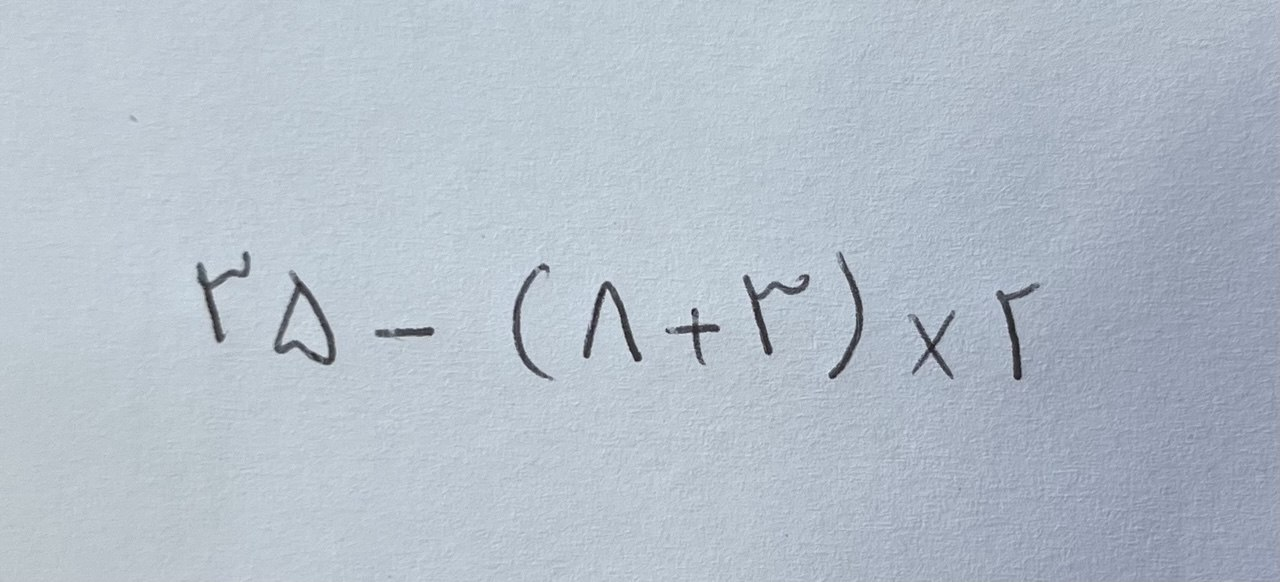 ۳۵ - (۸+۳) × ۲